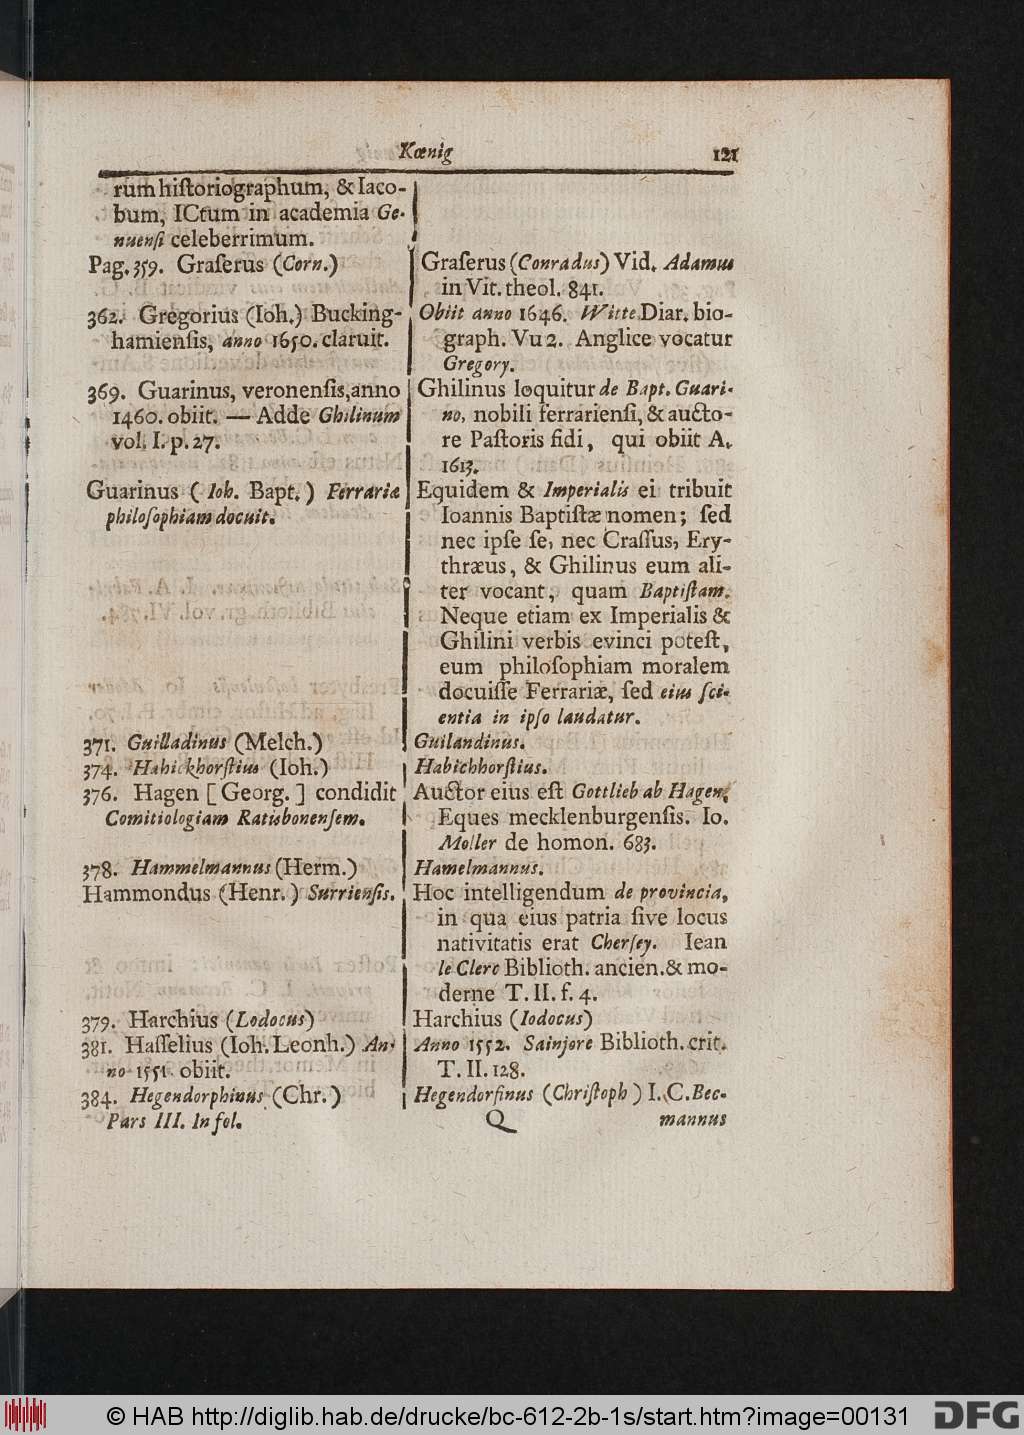 Kœnig 121
rum hiſtoriographum, & Iaco-
bum, ICtum in academia Ge-
nuenſi celeberrimum.
Pag. 359. Graſerus (Corn.)
362. Gregorius (Ioh.) Bucking-
hamienſis, anno 1650. claruit.
369. Guarinus, veronenſis, anno
1460. obiit. — Adde Ghilinum
vol. I. p. 27.
Guarinus ( Ioh. Bapt. ) Ferrariæ
philoſophiam docuit.
371. Guilladinus (Melch.)
374. Habickhorſtius (Ioh.)
376. Hagen [ Georg. ] condidit
Comitiologiam Ratisbonenſem.
378. Hammelmannus (Herm.)
Hammondus (Henr. ) Surrienſis.
379. Harchius (Lodocus)
381. Haſſelius (Ioh. Leonh.) An-
no 1551. obiit.
384. Hegendorphinus (Chr. )
Pars III. In fol.
Graſerus (Conradus) Vid. Adamus
in Vit. theol. 841.
Obiit anno 1646. Witte Diar. bio-
graph. Vu 2. Anglice vocatur
Gregory.
Ghilinus loquitur de Bapt. Guari-
no, nobili ferrarienſi, & aucto-
re Paſtoris fidi, qui obiit A.
1613.
Equidem & Imperialis ei tribuit
Ioannis Baptiſtæ nomen; ſed
nec ipſe ſe, nec Craſſus, Ery-
thræus, & Ghilinus eum ali-
ter vocant, quam Baptiſtam.
Neque etiam ex Imperialis &
Ghilini verbis evinci poteſt,
eum philoſophiam moralem
docuiſſe Ferrariæ, ſed eius ſci-
entia in ipſo laudatur.
Guilandinus.
Habichhorſtius.
Auctor eius eſt Gottlieb ab Hagen,
Eques mecklenburgenſis. Io.
Moller de homon. 683.
Hamelmannus.
Hoc intelligendum de provincia,
in qua eius patria ſive locus
nativitatis erat Cherſey. Iean
le Clerc Biblioth. ancien. & mo-
derne T. II. f. 4.
Harchius (Iodocus)
Anno 1552. Sainjore Biblioth. crit.
T. II. 128.
Hegendorfinus (Chriſtoph ) I. C. Bec-
Q mannus
© HAB http://diglib.hab.de/drucke/bc-612-2b-1s/start.htm?image=00131
DFG